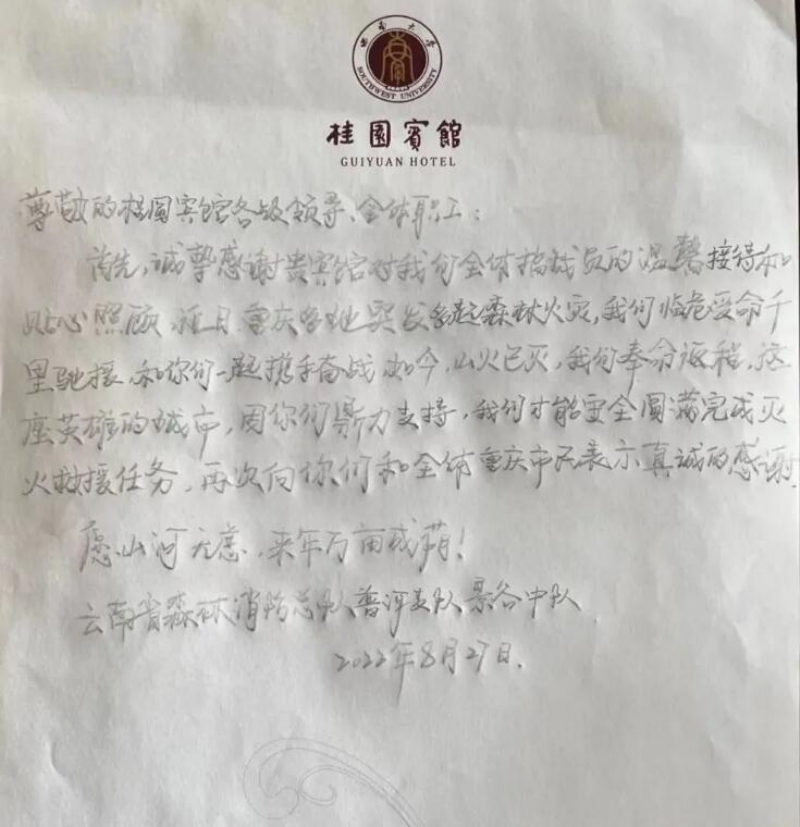 西南大学
SOUTHWEST UNIVERSITY
桂園賓館
GUIYUAN HOTEL
尊敬的桂圆宾馆各级领导、全体职工:
首先,诚挚感谢贵宾馆对我们全体指战员的温馨接待和
贴心照顾,近日重庆多地突发多起森林火灾,我们临危受命千
里驰援,和你们一起携手奋战,如今,山火已灭,我们奉命返程,这
座英雄的城市,因你们鼎力支持,我们才能安全圆满完成灭
火救援任务,再次向你们和全体重庆市民表示真诚的感谢.
愿山河无恙,来年万亩成荫!
云南省森林消防总队普洱支队景谷中队
2022年8月27日.